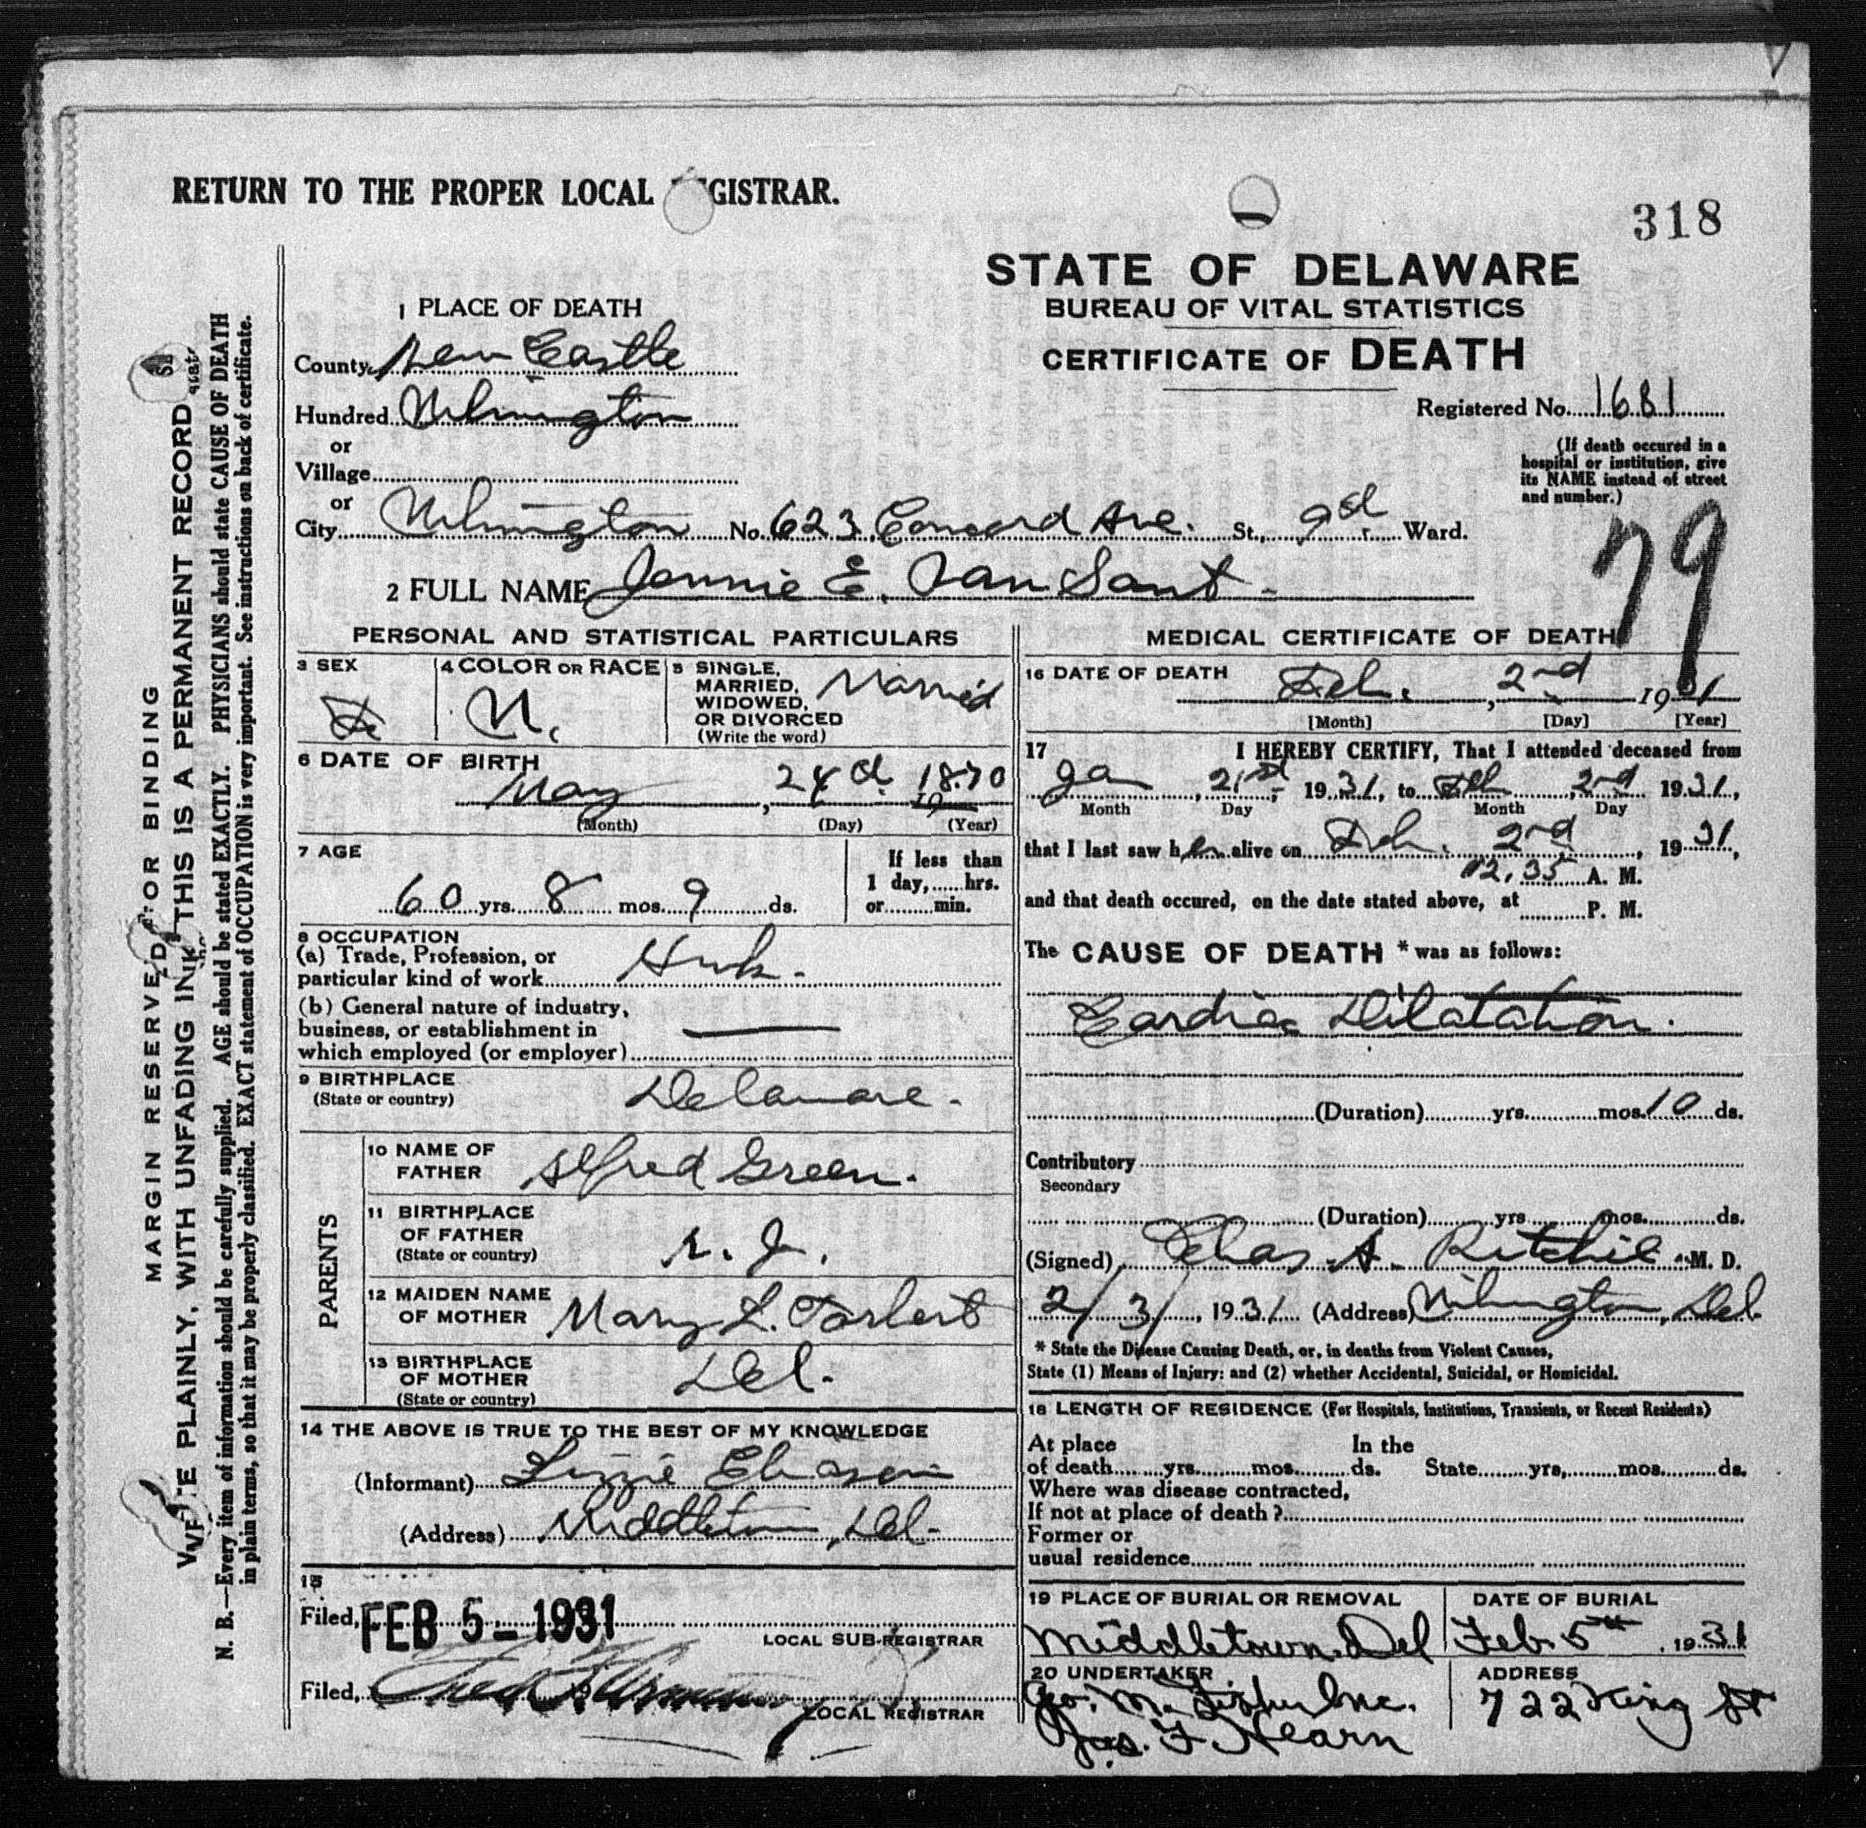 RETURN TO THE PROPER LOCAL GISTRAR.
318
STATE OF DELAWARE
BUREAU OF VITAL STATISTICS
CERTIFICATE OF DEATH
Registered No. 1681
(If death occured in a
hospital or institution, give
its NAME instead of street
and number.)
79
1 PLACE OF DEATH
County New Castle
Hundred Wilmington
or
Village
or
City Wilmington No. 623 Concord Ave. St., 9th Ward.
2 FULL NAME Jennie E. Van Sant
PERSONAL AND STATISTICAL PARTICULARS
3 SEX F.
4 COLOR OR RACE W.
5 SINGLE,
MARRIED,
WIDOWED,
OR DIVORCED
(Write the word)
Married
6 DATE OF BIRTH
May, 24th 1870
19
(Month) (Day) (Year)
7 AGE
60 yrs. 8 mos. 9 ds.
If less than
1 day, hrs.
or min.
8 OCCUPATION
(a) Trade, Profession, or
particular kind of work
(b) General nature of industry,
business, or establishment in
which employed (or employer)
9 BIRTHPLACE
(State or country)
Delaware.
PARENTS
10 NAME OF
FATHER
Alfred Green.
11 BIRTHPLACE
OF FATHER
(State or country)
N. J.
12 MAIDEN NAME
OF MOTHER
Mary L. Torbert
13 BIRTHPLACE
OF MOTHER
(State or country)
Del.
14 THE ABOVE IS TRUE TO THE BEST OF MY KNOWLEDGE
(Informant) Lizzie Eliason
(Address) Middletown, Del.
15
Filed, FEB 5 - 1931
LOCAL SUB-REGISTRAR
Filed,
LOCAL REGISTRAR
MEDICAL CERTIFICATE OF DEATH
16 DATE OF DEATH Feb., 2nd 1931
[Month] [Day] [Year]
17 I HEREBY CERTIFY, That I attended deceased from
Jan, 21st, 1931, to Feb, 2nd 1931,
Month Day Month Day
that I last saw her alive on Feb. 2nd, 1931,
12.35 A. M.
and that death occured, on the date stated above, at P. M.
The CAUSE OF DEATH * was as follows:
Cardiac Dilatation.
(Duration) yrs. mos. 10 ds.
Contributory
Secondary
(Duration) yrs. mos. ds.
(Signed), Chas. A. Ritchie M. D.
2/3/, 1931 (Address) Wilmington, Del.
* State the Disease Causing Death, or, in deaths from Violent Causes,
State (1) Means of Injury; and (2) whether Accidental, Suicidal, or Homicidal.
18 LENGTH OF RESIDENCE (For Hospitals, Institutions, Transients, or Recent Residents)
At place In the
of death yrs. mos. ds. State yrs, mos. ds.
Where was disease contracted,
If not at place of death ?
Former or
usual residence
19 PLACE OF BURIAL OR REMOVAL
Middletown. Del
DATE OF BURIAL
Feb. 5th, 1931
20 UNDERTAKER
Geo. M. Inc.
Jas. F. Hearn
ADDRESS
722 King St
MARGIN RESERVED FOR BINDING
WRITE PLAINLY, WITH UNFADING INK THIS IS A PERMANENT RECORD
N. B.—Every item of information should be carefully supplied. AGE should be stated EXACTLY. PHYSICIANS should state CAUSE OF DEATH
in plain terms, so that it may be properly classified. EXACT statement of OCCUPATION is very important. See instructions on back of certificate.